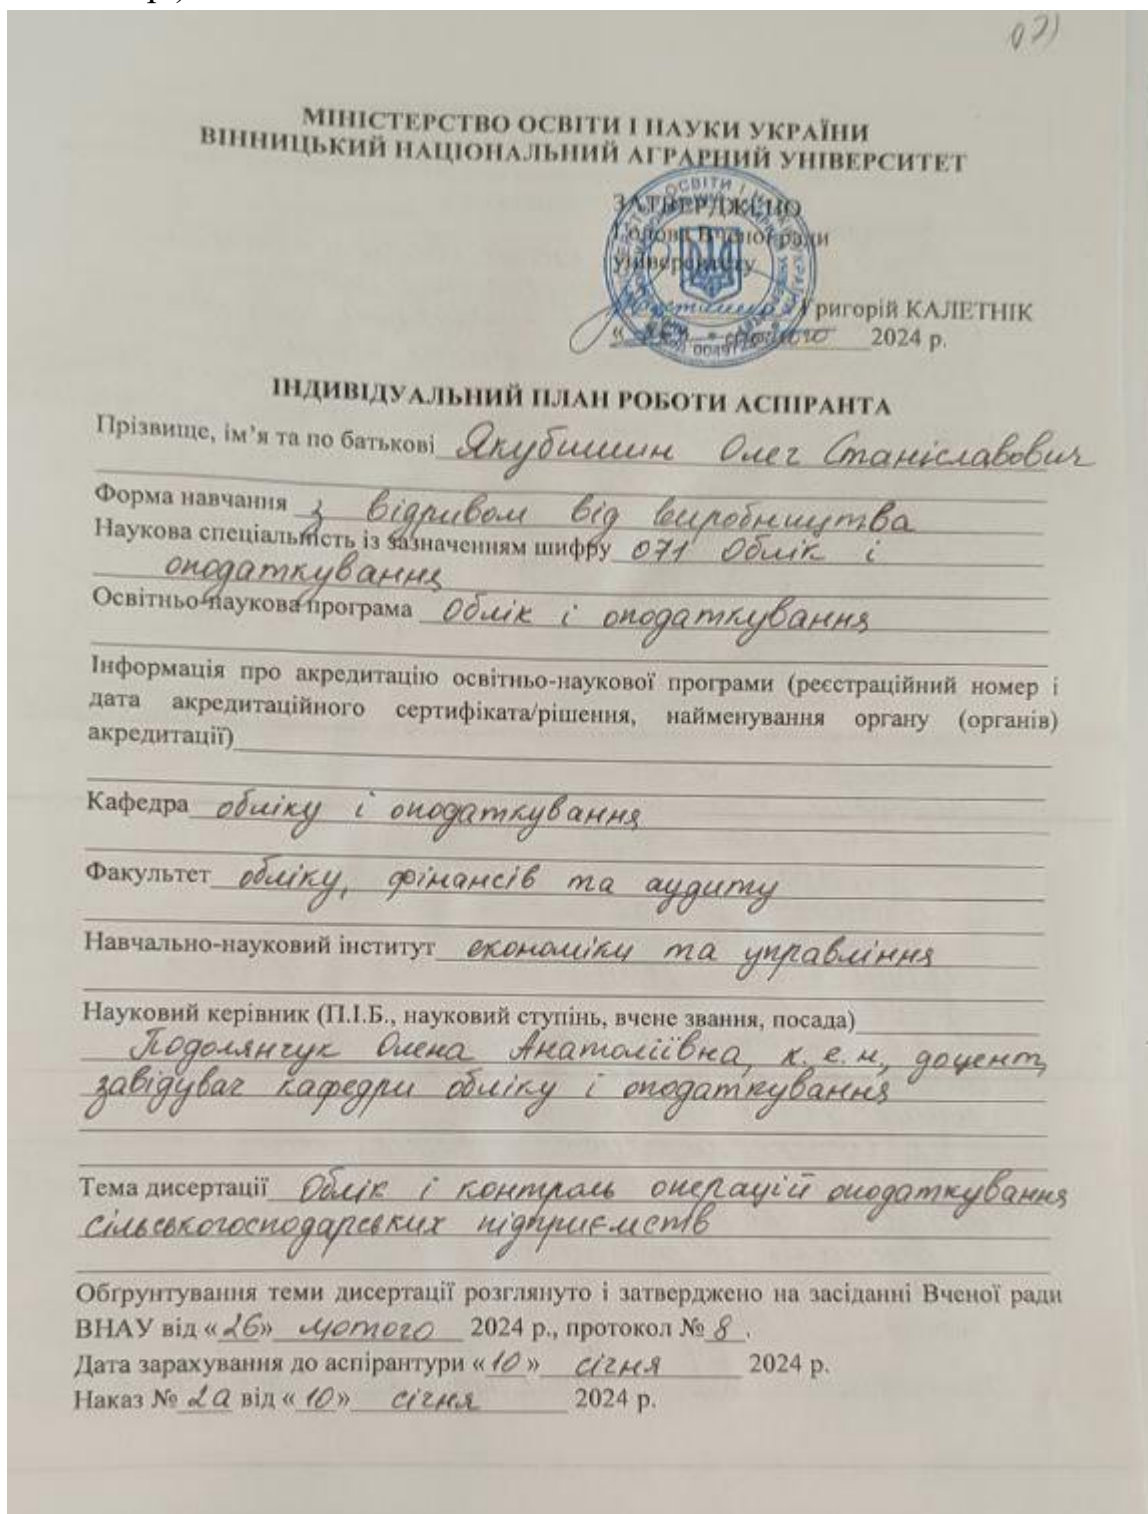 МІНІСТЕРСТВО ОСВІТИ І НАУКИ УКРАЇНИ
ВІННИЦЬКИЙ НАЦІОНАЛЬНИЙ АГРАРНИЙ УНІВЕРСИТЕТ
ЗАТВЕРДЖЕНО
Голова Вченої ради
університету
Григорій КАЛЕТНІК
« » лютого 2024 р.
ІНДИВІДУАЛЬНИЙ ПЛАН РОБОТИ АСПІРАНТА
Прізвище, ім’я та по батькові Якубишин Олег Станіславович
Форма навчання з відривом від виробництва
Наукова спеціальність із зазначенням шифру 071 Облік і
оподаткування
Освітньо-наукова програма Облік і оподаткування
Інформація про акредитацію освітньо-наукової програми (реєстраційний номер і
дата акредитаційного сертифіката/рішення, найменування органу (органів)
акредитації)
Кафедра обліку і оподаткування
Факультет обліку, фінансів та аудиту
Навчально-науковий інститут економіки та управління
Науковий керівник (П.І.Б., науковий ступінь, вчене звання, посада)
Подолянчук Олена Анатоліївна, к.е.н., доцент,
завідувач кафедри обліку і оподаткування
Тема дисертації Облік і контроль операцій оподаткування
сільськогосподарських підприємств
Обґрунтування теми дисертації розглянуто і затверджено на засіданні Вченої ради
ВНАУ від «26» лютого 2024 р., протокол № 8.
Дата зарахування до аспірантури «10» січня 2024 р.
Наказ № 2а від «10» січня 2024 р.